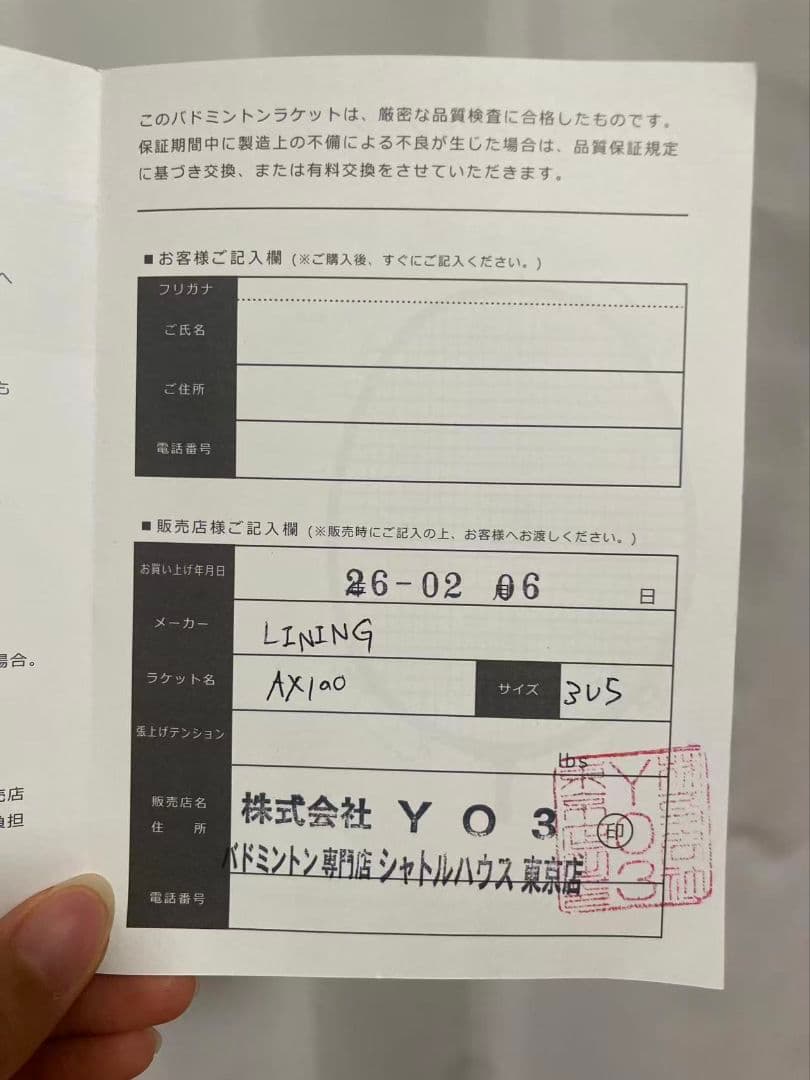 このバドミントンラケットは、厳密な品質検査に合格したものです。
保証期間中に製造上の不備による不良が生じた場合は、品質保証規定
に基づき交換、または有料交換をさせていただきます。
■お客様ご記入欄(※ご購入後、すぐにご記入ください。)
フリガナ
ご氏名
ご住所
電話番号
■販売店様ご記入欄(※販売時にご記入の上、お客様へお渡しください。)
お買い上げ年月日 26-02 06 日
メーカー LINING
ラケット名 AX100 サイズ 3U5
張上げテンション lbs
販売店名 株式会社 YO3 印
住 所 バドミントン専門店 シャトルハウス 東京店
電話番号
場合。
売店
負担